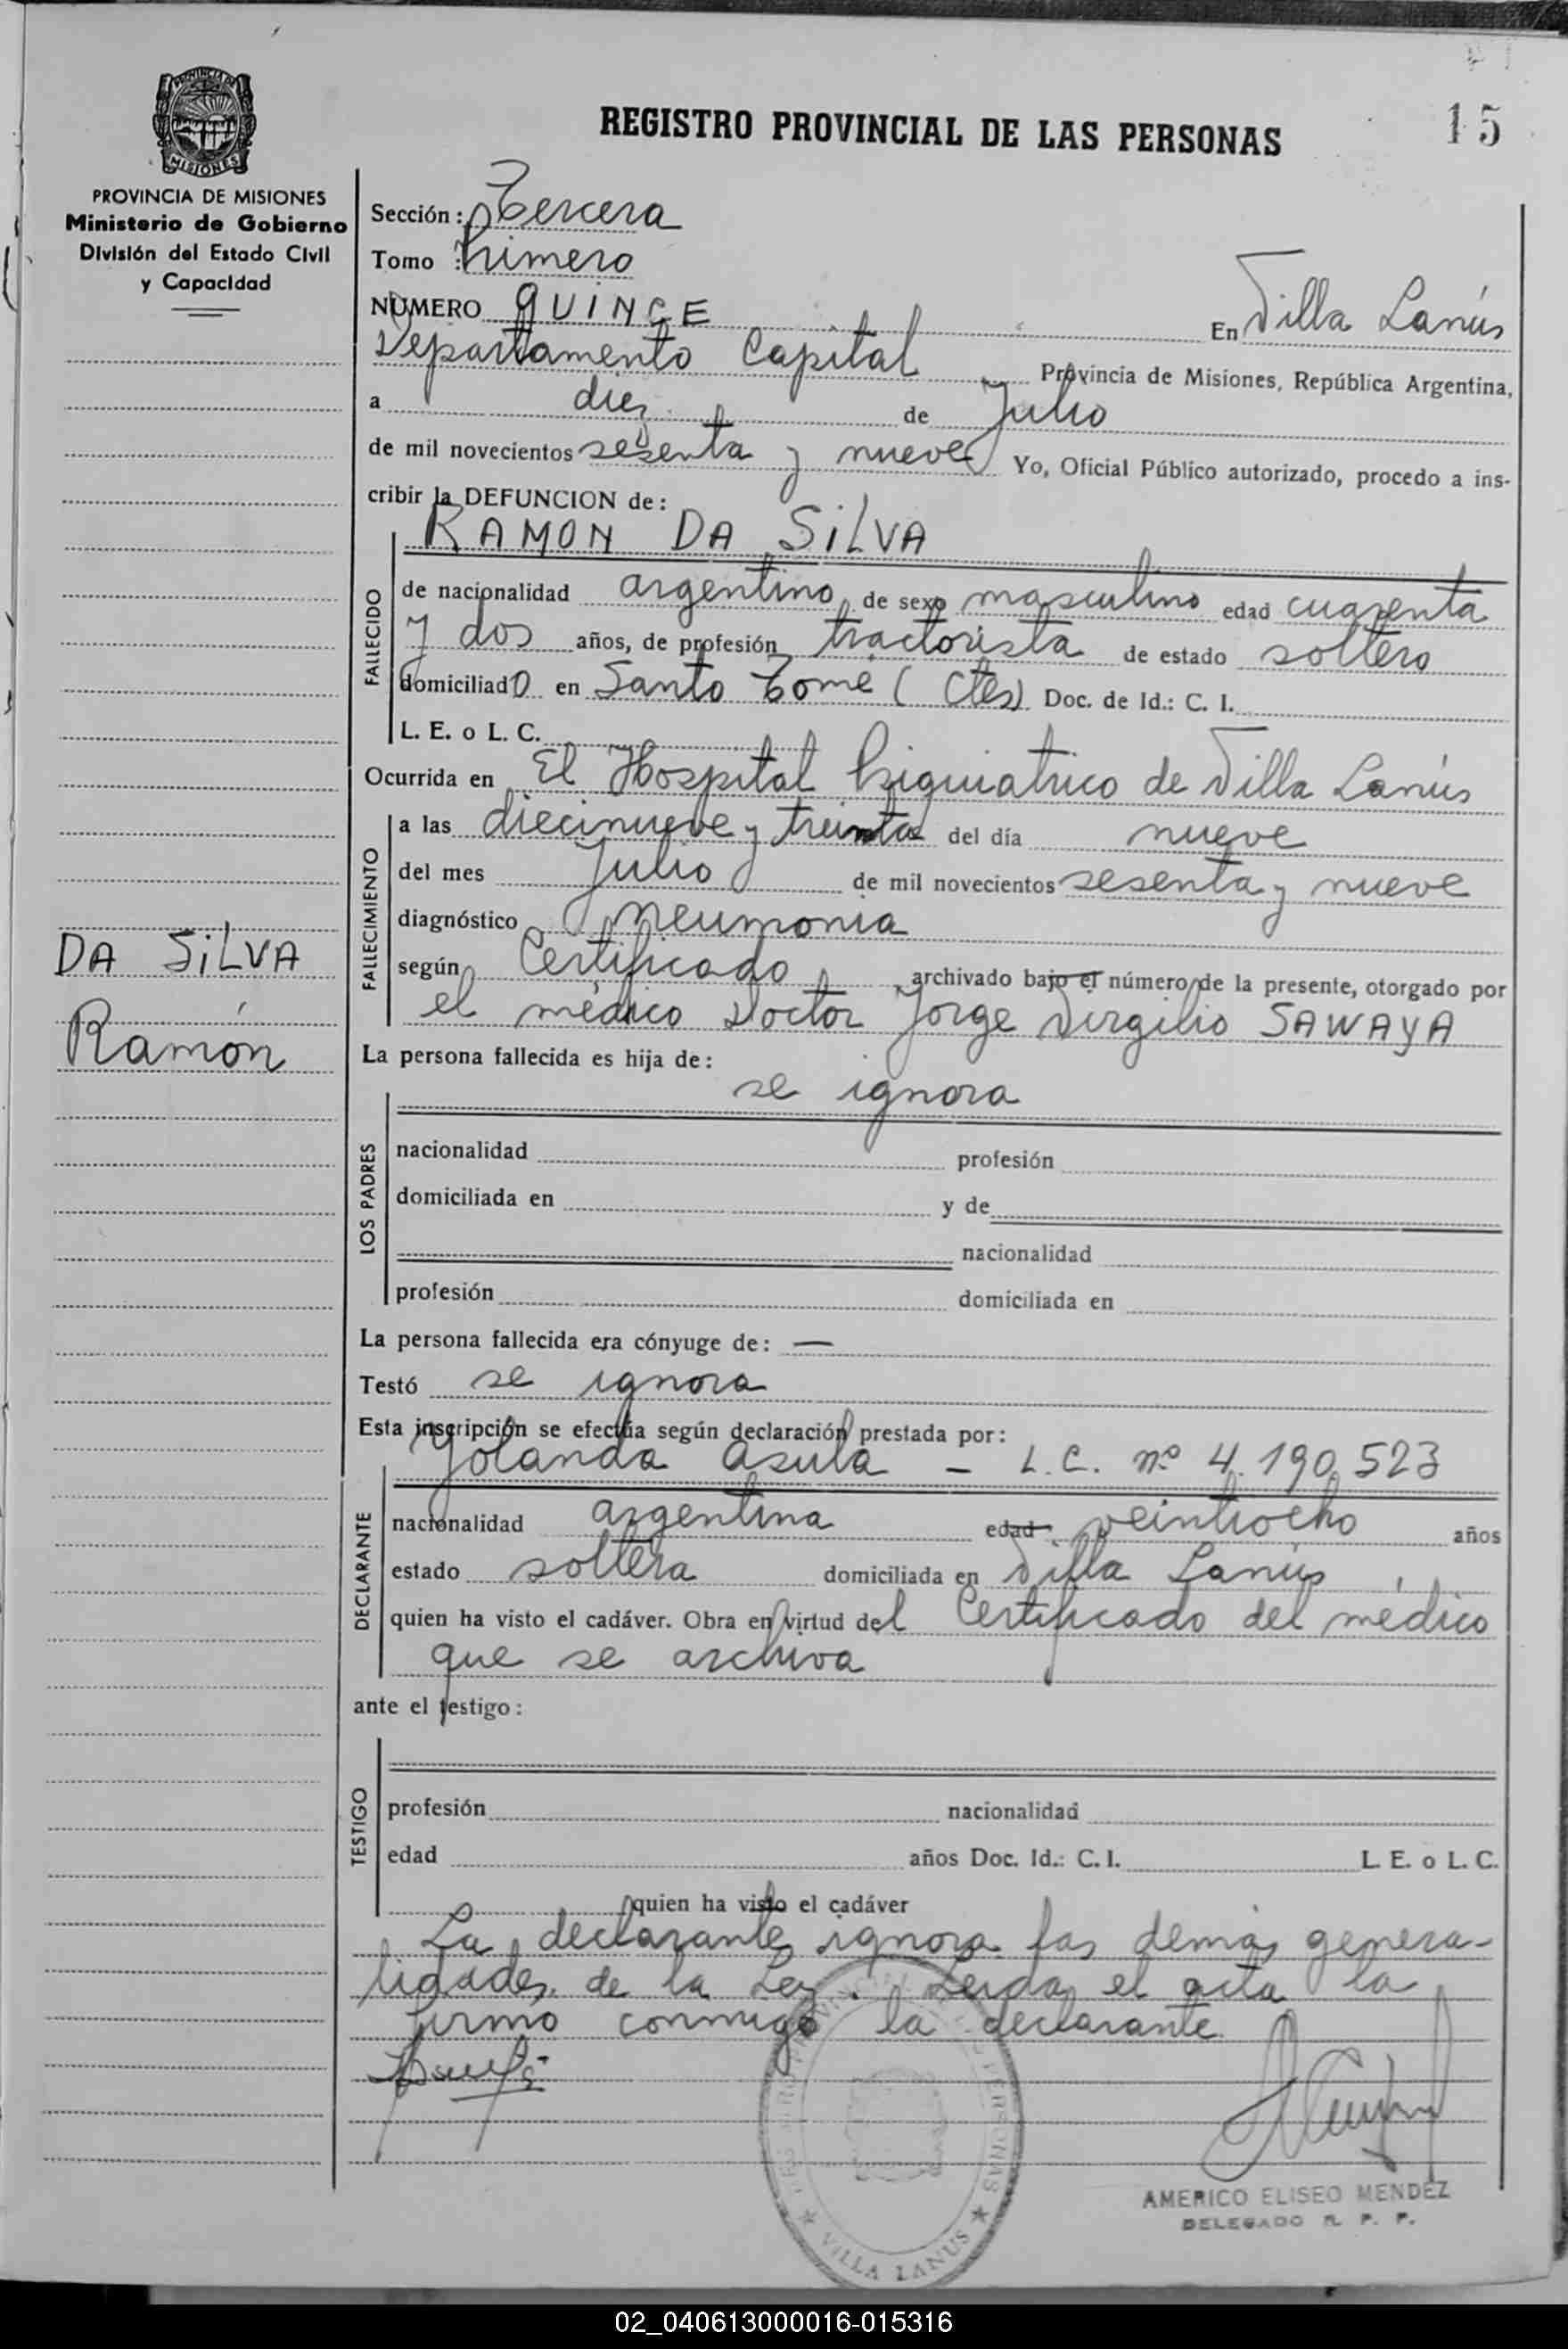 15
REGISTRO PROVINCIAL DE LAS PERSONAS
PROVINCIA DE MISIONES
MISIONES
PROVINCIA DE MISIONES
Ministerio de Gobierno
División del Estado Civil
y Capacidad
Sección: Tercera
Tomo : Primero
NUMERO QUINCE En Villa Lanús
Departamento Capital Provincia de Misiones, República Argentina,
a diez de Julio
de mil novecientos sesenta y nueve Yo, Oficial Público autorizado, procedo a ins-
cribir la DEFUNCION de:
RAMON DA SiLVA
FALLECIDO
de nacionalidad argentino de sexo masculino edad cuarenta
y dos años, de profesión tractorista de estado soltero
domiciliado en Santo Tomé (Ctes) Doc. de Id.: C. I.
L. E. o L. C.
Ocurrida en El Hospital Psiquiatrico de Villa Lanús
FALLECIMIENTO
a las diecinueve y treinta del día nueve
del mes Julio de mil novecientos sesenta y nueve
diagnóstico neumonia
según Certificado archivado bajo el número de la presente, otorgado por
el médico Doctor Jorge Virgilio SAWAYA
DA SiLVA
Ramón
La persona fallecida es hija de:
se ignora
LOS PADRES
nacionalidad profesión
domiciliada en y de
nacionalidad
profesión domiciliada en
La persona fallecida era cónyuge de: —
Testó se ignora
Esta inscripción se efectúa según declaración prestada por:
Yolanda Asula - L.C. nº 4.190.523
DECLARANTE
nacionalidad argentina edad veintiocho años
estado soltera domiciliada en Villa Lanús,
quien ha visto el cadáver. Obra en virtud del Certificado del médico
que se archiva
ante el testigo:
TESTIGO
profesión nacionalidad
edad años Doc. Id.: C. I. L. E. o L. C.
quien ha visto el cadáver
La declarante ignora las demás genera-
lidades de la Ley. Leida el acta la
firmó conmigo la declarante
PERSONAS
★ VILLA LANUS ★
AMERICO ELISEO MENDEZ
DELEGADO R. P. P.
02_040613000016-015316